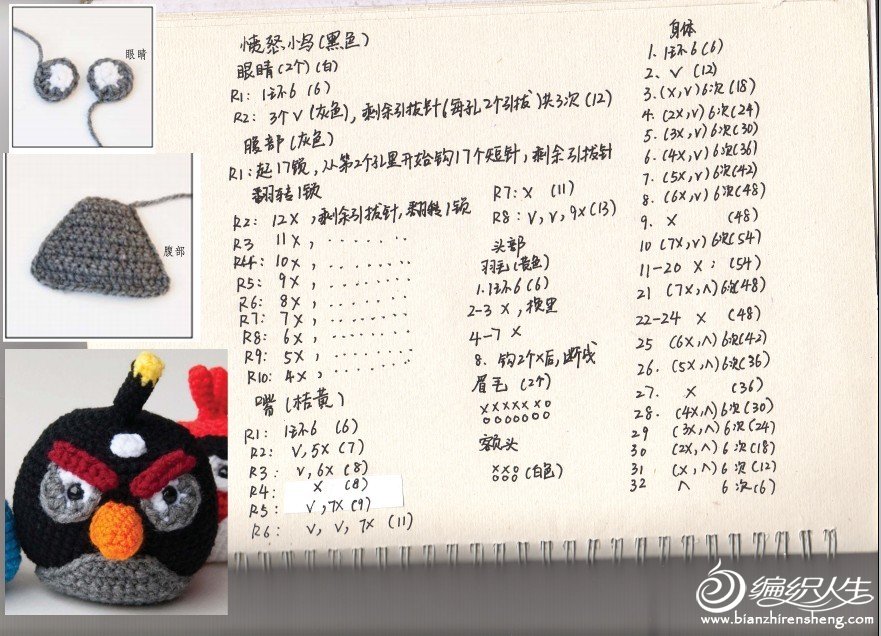 愤怒小鸟(黑色)
眼睛(2个)(白)
R1: 1环6 (6)
R2: 3个V(灰色), 剩余引拔针(每孔2个引拔)共3次(12)
腹部(灰色)
R1: 起17锁, 从第2个孔里开始钩17个短针, 剩余引拔针
翻转1锁
R2: 12X, 剩余引拔针, 翻转1锁
R3 11X, ........
R4: 10X, ........
R5: 9X, ........
R6: 8X, ........
R7: 7X, ........
R8: 6X, ........
R9: 5X, ........
R10: 4X, ........
嘴(桔黄)
R1: 1环6 (6)
R2: V,5X (7)
R3: V,6X (8)
R4: X (8)
R5: V,7X (9)
R6: V, V, 7X (11)
R7: X (11)
R8: V, V, 9X (13)
头部
羽毛(黄色)
1.1环6(6)
2-3 X, 换黑
4-7 X
8. 钩2个X后, 断线
眉毛(2个)
XXXXXX0
0000000
额头
XX0 (白色)
000
身体
1. 1环6(6)
2. V (12)
3. (X,V)6次(18)
4. (2X,V)6次(24)
5. (3X,V)6次(30)
6. (4X,V)6次(36)
7. (5X,V)6次(42)
8. (6X,V)6次(48)
9. X (48)
10 (7X,V)6次(54)
11-20 X: (54)
21 (7X,∧)6次(48)
22-24 X (48)
25 (6X,∧)6次(42)
26. (5X,∧)6次(36)
27. X (36)
28. (4X,∧)6次(30)
29 (3X,∧)6次(24)
30 (2X,∧)6次(18)
31 (X,∧)6次(12)
32 ∧ 6次(6)
眼睛
腹部
编织人生
www.bianzhirensheng.com